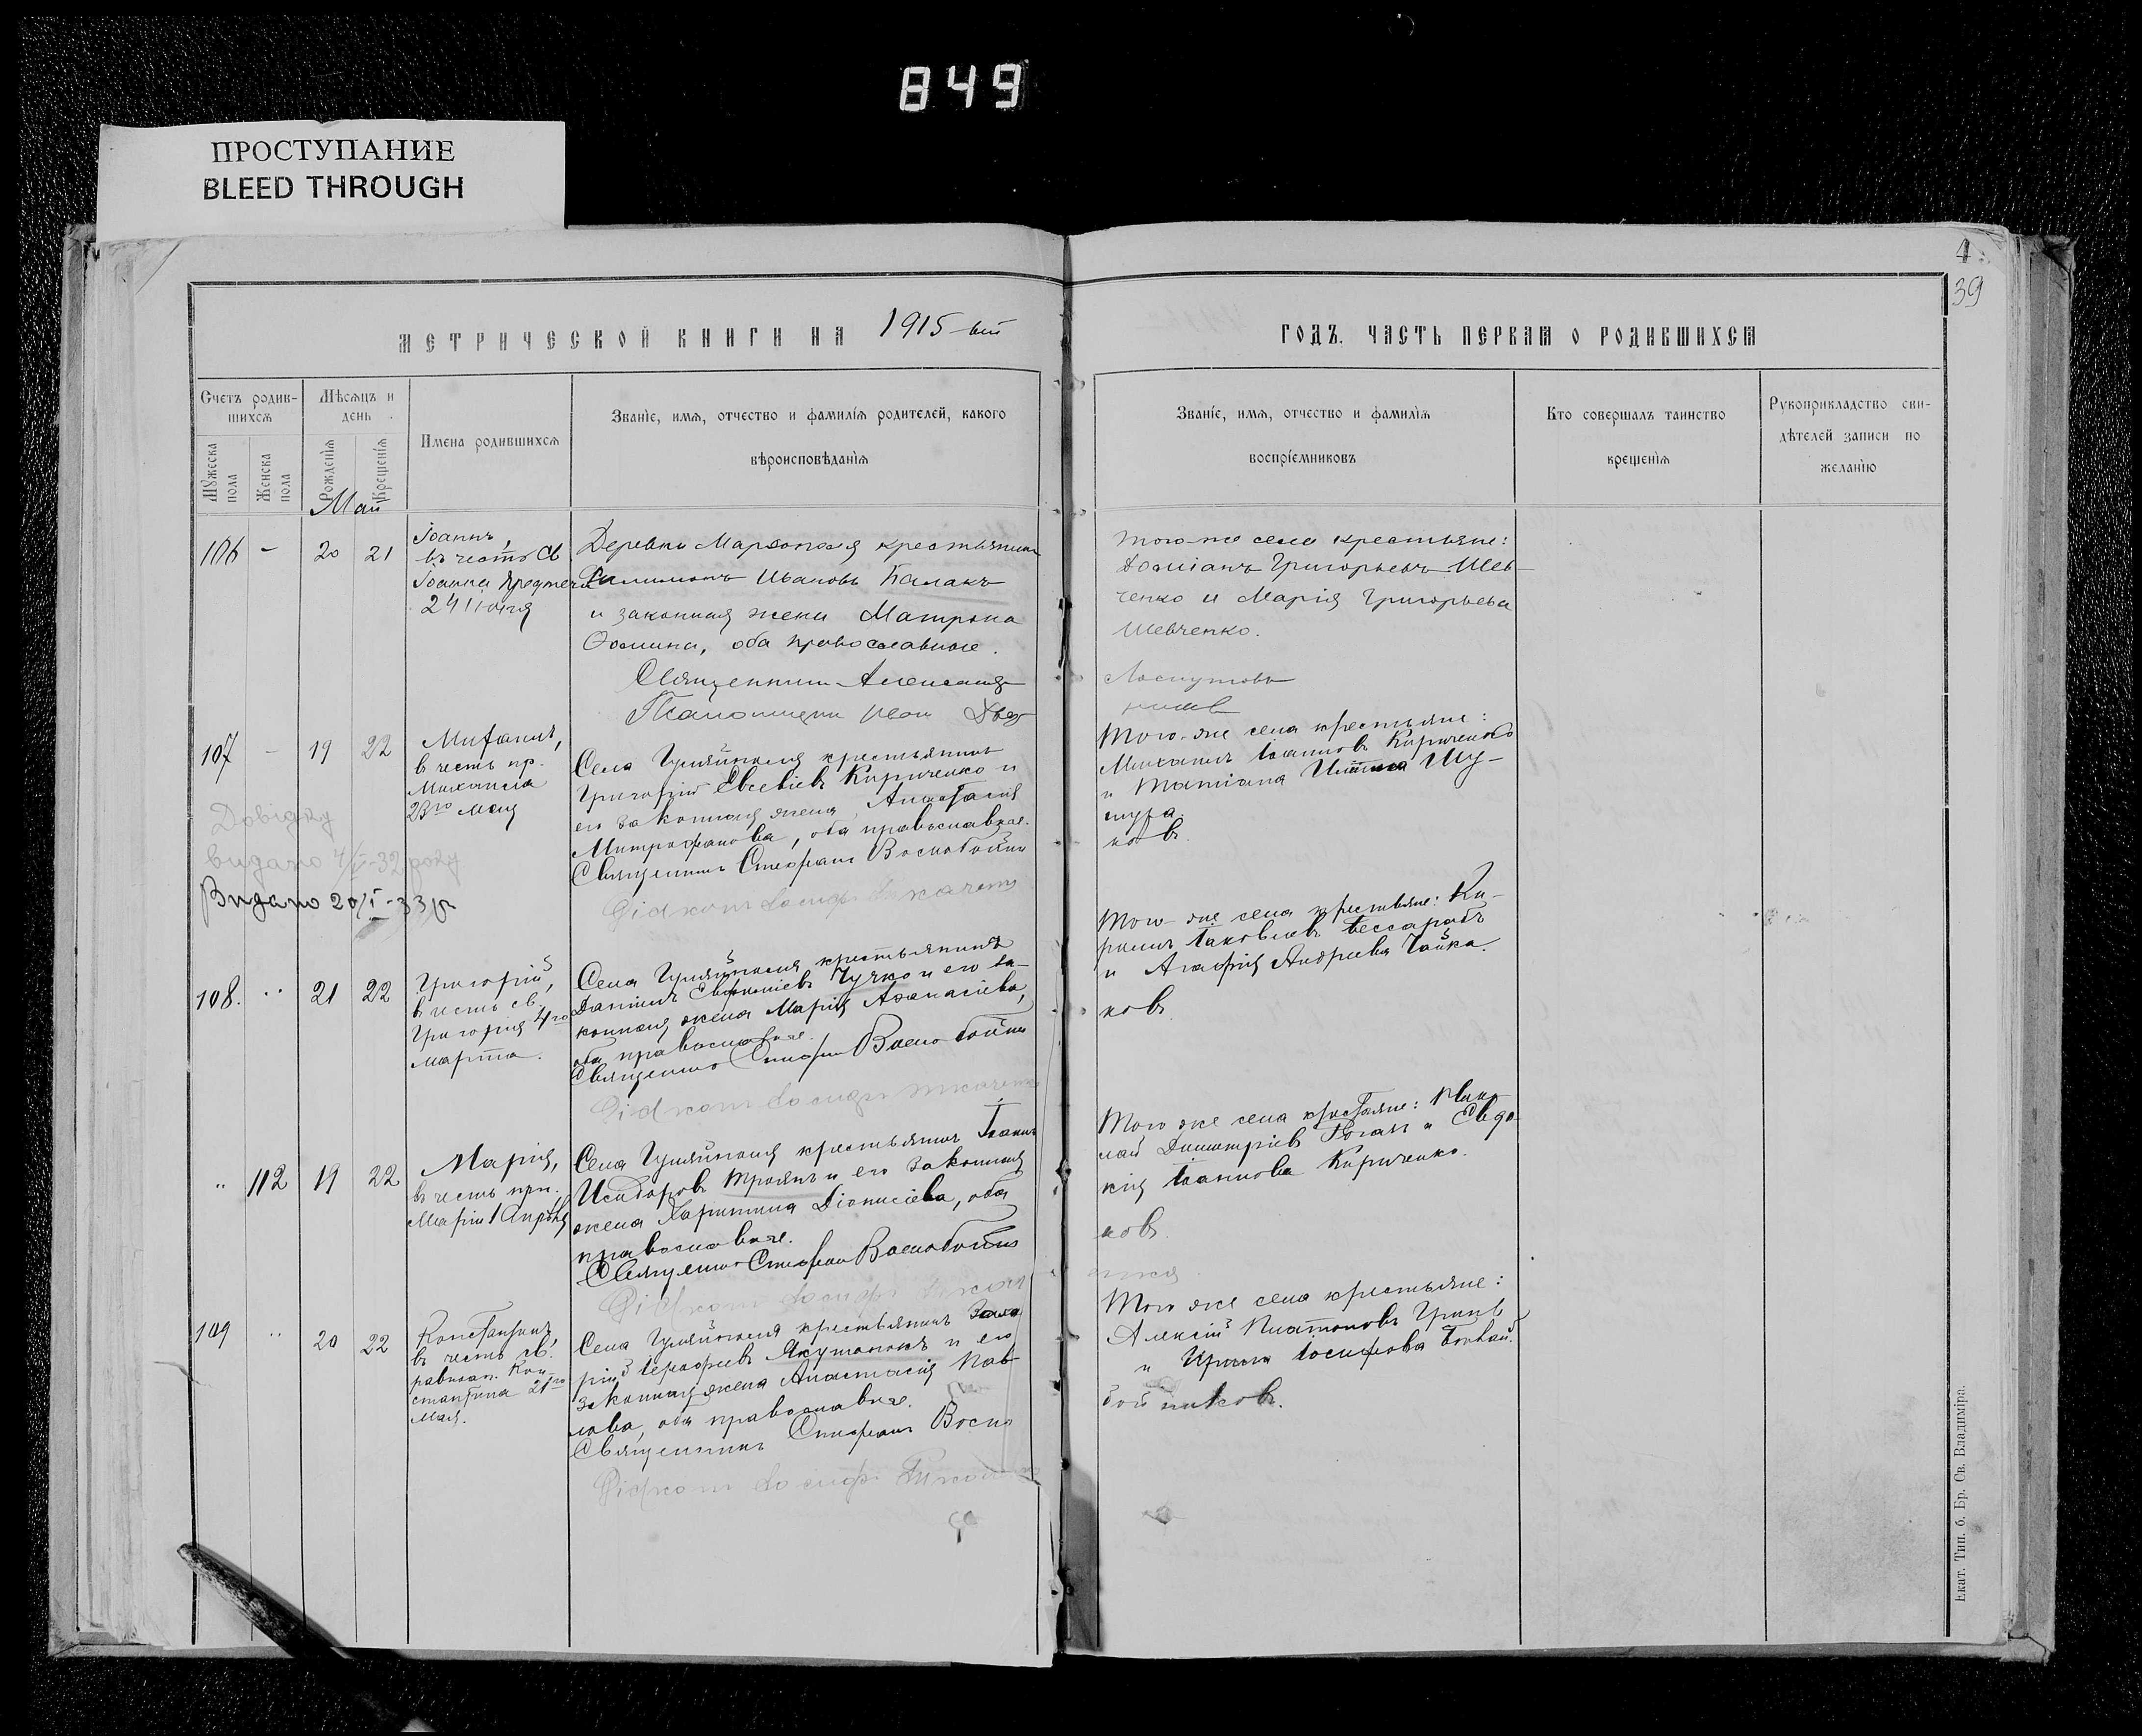 849
ПРОСТУПАНИЕ
BLEED THROUGH
4
39
МЕТРИЧЕСКОЙ КНИГИ НА 1915-ый
ГОДЪ. ЧАСТЬ ПЕРВАЯ О РОДИВШИХСЯ
Счетъ родив-
шихся
Мужеска
пола
Женска
пола
Мѣсяцъ и
день
Рожденія
Крещенія
Имена родившихся
Званіе, имя, отчество и фамилія родителей, какого
вѣроисповѣданія
Званіе, имя, отчество и фамилія
воспріемниковъ
Кто совершалъ таинство
крещенія
Рукоприкладство сви-
дѣтелей записи по
желанію
Май
106 - 20 21
Іоаннъ,
въ честь св
Іоанна Предтечи
24 Іюня
Деревни Маръополя крестьянинъ
Филимонъ Ивановъ Балакъ
и законная жена Матрона
Ѳомина, оба православные.
Священникъ Александръ
Того-же села крестьяне:
Даміанъ Григорьевъ Шев-
ченко и Марія Григорьева
Шевченко.
Лоскутовъ
107 - 19 22
Михаилъ,
в честь пр.
Михаила
23го мая
Довідку
видано 4/ІІ-32 року
Видано 20/І-33 р
Села Гуляйполя крестьянинъ
Григорій Евсевіевъ Кириченко и
его законная жена Анастасія
Митрофанова, оба православные.
Священникъ Стефанъ Воскобойни
Того-же села крестьяне:
Михаилъ Іоанновъ Кириченко
и Татіана Шу-
шура.
ковъ.
108. " 21 22
Григорій,
в честь св.
Григорія 4го
марта.
Села Гуляйполя крестьянинъ
Даніилъ Евфиміевъ Чучко и его за-
конная жена Марія Аѳанасіева,
оба православные.
Священникъ Стефанъ Воскобойни
Того-же села крестьяне: Ки-
риллъ Іаковлевъ Бессарабъ
и Агафія Андреева Чайка.
ковъ.
" 112 19 22
Марія,
въ честь прп.
Маріи 1 Апрѣля
Села Гуляйполя крестьянинъ Іоаннъ
Исидоровъ Троянъ и его законная
жена Харитина Діонисіева, оба
православные.
Священникъ Стефанъ Воскобойни
Того же села крестьяне: Нико-
лай Димитріевъ Роганъ и Евдо-
кія Іоаннова Кириченко.
ковъ.
109 " 20 22
Константинъ,
въ честь св.
равноап. Кон-
стантина 21го
мая.
Села Гуляйполя крестьянинъ Заха
рій Іерофеевъ Якутенокъ и его
законная жена Анастасія Пав-
лова, оба православные.
Священникъ Стефанъ Воско
Того же села крестьяне:
Алексій Платоновъ Гринь
и Ирина Іосифова
бойниковъ.
Екат. Тип. б. Бр. Св. Владиміра.